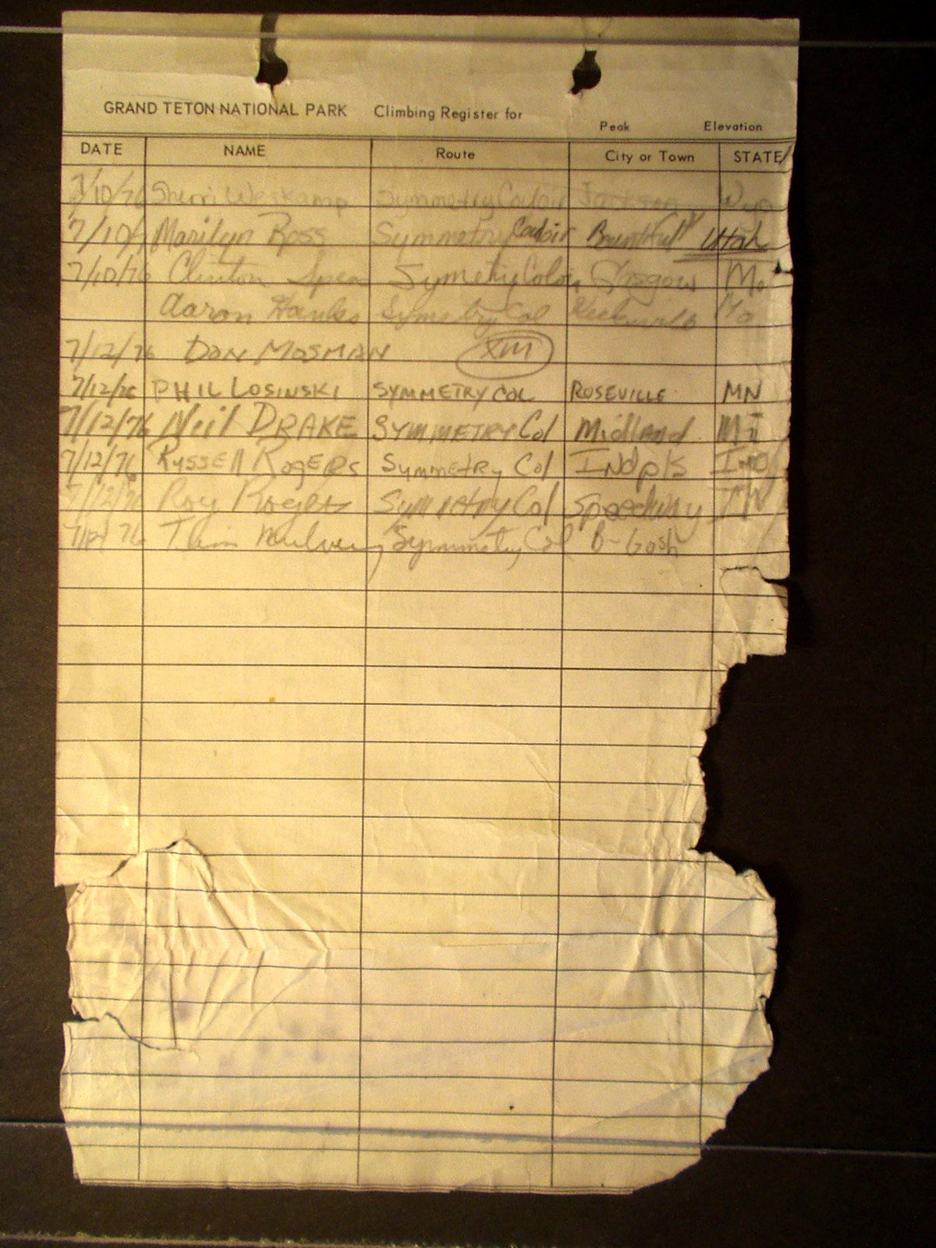 GRAND TETON NATIONAL PARK Climbing Register for
Peak Elevation
DATE NAME Route City or Town STATE
7/10/76 Sherri Weskamp Symmetry Couloir Jackson Wyo
7/10/ Marilyn Ross Symmetry Couloir Bountiful Utah
7/10/76 Clinton Spear Symetry Glasgow Mo
Aaron Hanks Symetry Col Mo
7/12/76 DON MOSMAN XIII
7/12/76 PHIL LOSINSKI SYMMETRY COL ROSEVILLE MN
7/12/76 Neil DRAKE SYMMETRY Col Midland MI
7/12/76 RUSSEll ROGERS Symmetry Col INdpls IND
7/12/76 Roy Rogers Symmetry Col IN
7/12/76 Symmety Col B-Gosh